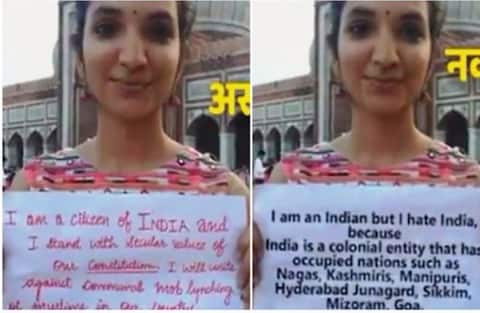 I am a citizen of INDIA and
I stand with secular values of
our Constitution. I will write
against communal mob lynching
of muslims in our
अस
I am an Indian but I hate India,
because
India is a colonial entity that has
occupied nations such as
Nagas, Kashmiris, Manipuris,
Hyderabad Junagard, Sikkim,
Mizoram, Goa.
नक